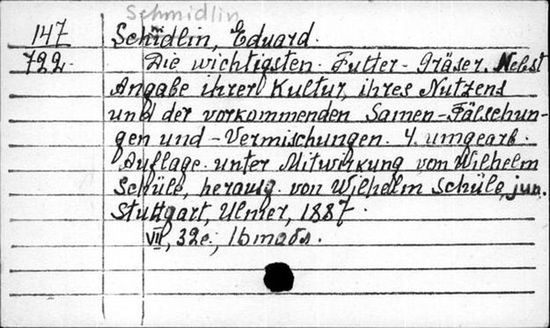 Schmidlin
147 Schidlin, Eduard.
722. Die wichtigsten Futter-Gräser. Nebst
Angabe ihrer Kultur, ihres Nutzens
und der vorkommenden Samen-Fälschun-
gen und -Vermischungen. 4. umgearb.
Auflage unter Mitwirkung von Wilhelm
Schüle, herausg. von Wilhelm Schüle, jun.
Stuttgart, Ulmer, 1887.
VII, 32 e., 16